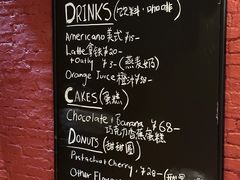 DRINKS (饮料
Americano 美式 ¥15-
Latte 拿铁 ¥20-
+Oatly ¥3- (燕麦奶)
Orange Juice 橙汁 ¥38-
CAKES (蛋糕)
Chocolate + Banana ¥68-
巧克力香蕉蛋糕
DONUTS (甜甜圈)
Pistachio + Cherry, ¥28-
Other Flavo